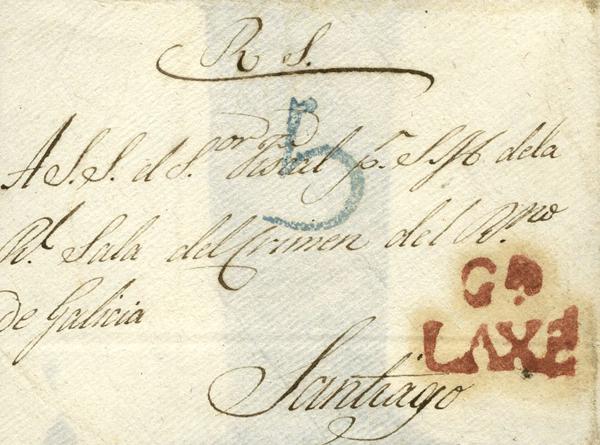 R S.
5
A S. S. el S.or Fiscal p.r S. M. de la
R.l Sala del Crimen del R.no
de Galicia
Ga
LAXE
Santiago